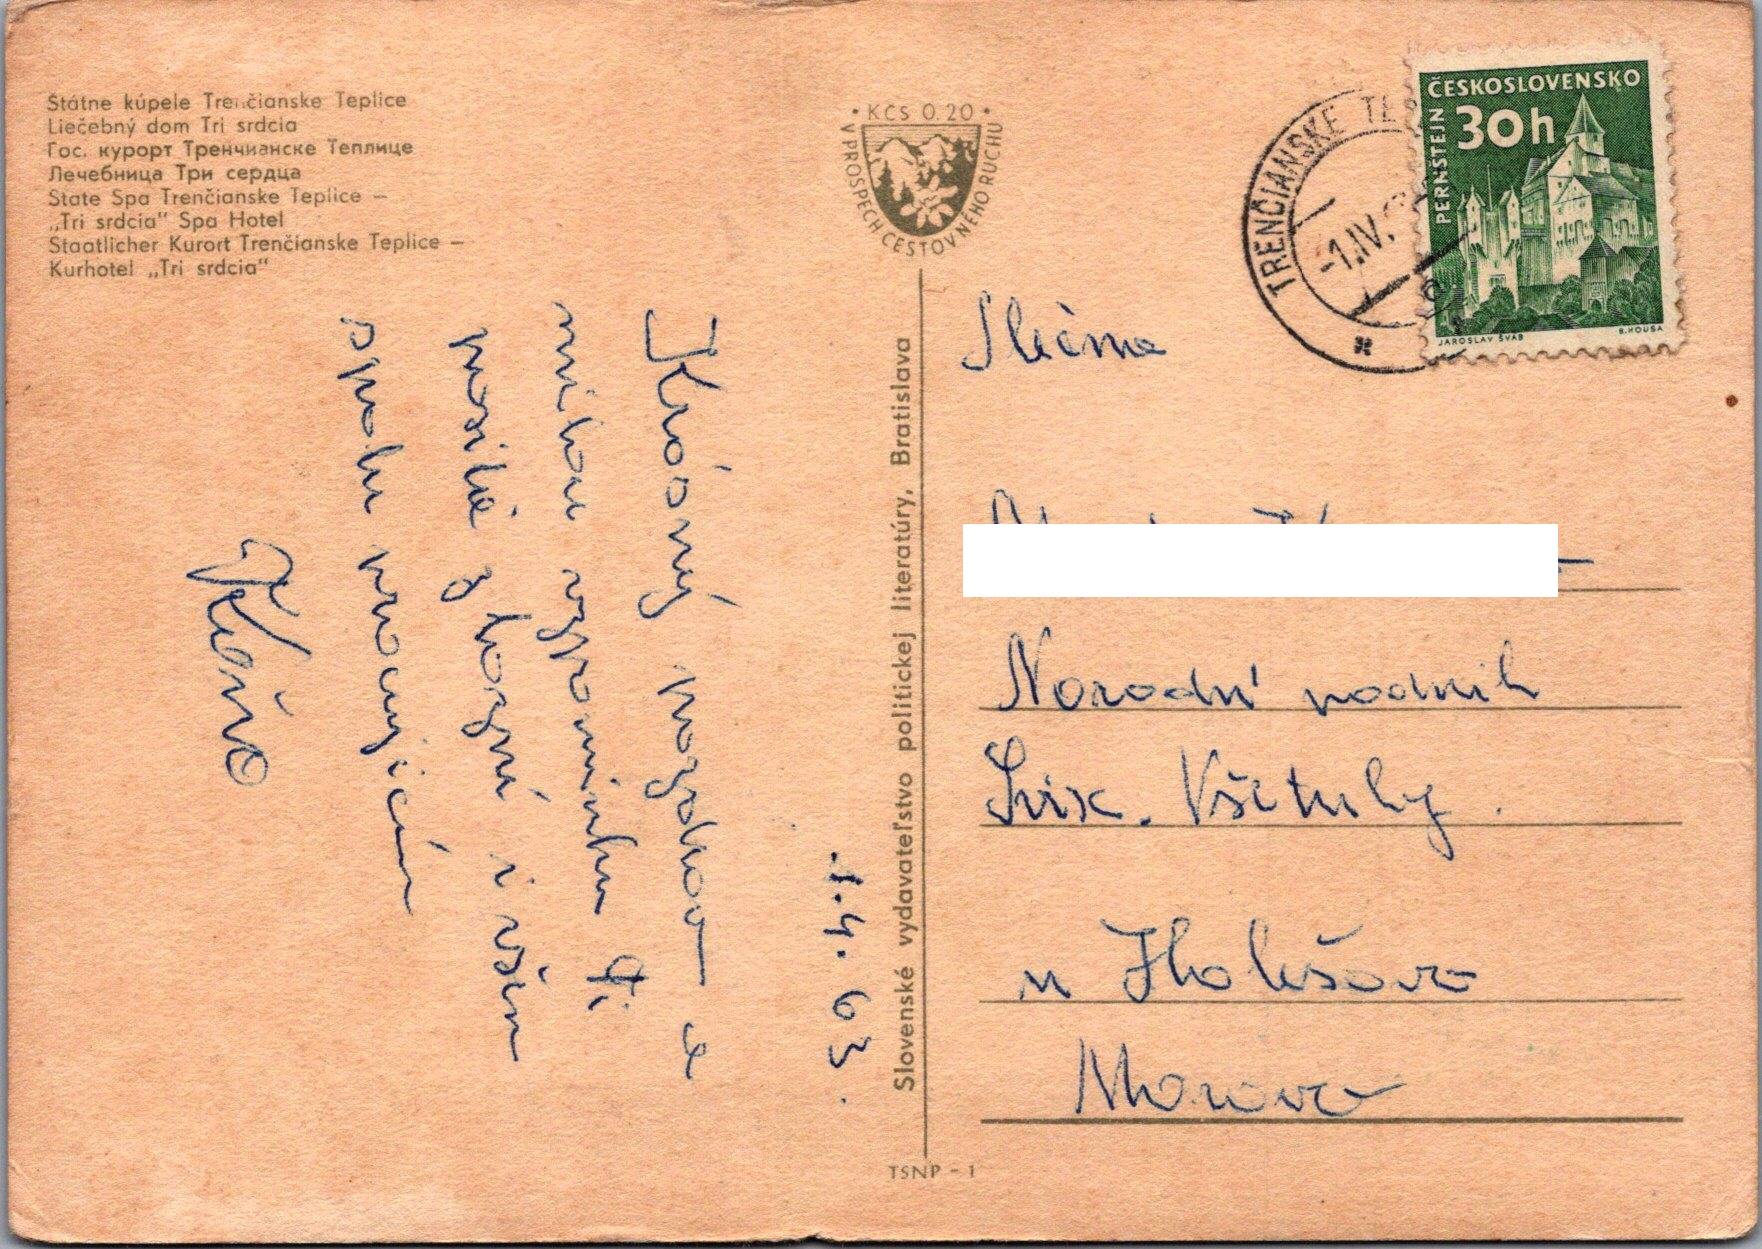 Štátne kúpele Trenčianske Teplice
Liečebný dom Tri srdcia
Гос. курорт Тренчианске Теплице
Лечебница Три сердца
State Spa Trenčianske Teplice –
„Tri srdcia" Spa Hotel
Staatlicher Kurort Trenčianske Teplice –
Kurhotel „Tri srdcia"
• KČS 0.20 •
V PROSPECH CESTOVNÉHO RUCHU
TRENČIANSKE TE
-1.IV.
ČESKOSLOVENSKO
30h
PERNŠTEJN
JAROSLAV ŠVÁB
B. HOUSA
1.4. 63.
Krásný pozdrav a
milou vzpomínku Ti
posílá z lázní i všem
spolu pracujícím
Slovenské vydavateľstvo politickej literatúry, Bratislava
Slečna
Národní podnik
Svix. Všetuly.
u Holešova
Morava
TSNP - 1